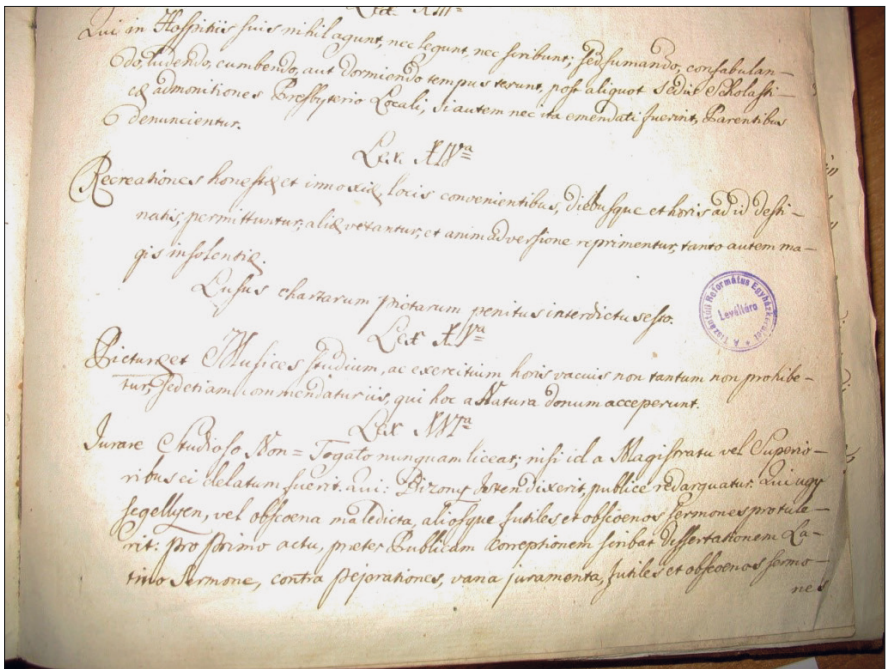 Lex XIII
Qui in Hospitiis suis nihil agunt, nec legunt, nec scribunt; sed fumando, confabulan-
do, ludendo, cumbendo, aut dormiendo tempus terunt, post aliquot Sedis Scholasti-
cæ admonitiones Presbyterio Locali, si autem nec ita emendati fuerint, Parentibus
denuncientur.
Lex XIVa
Recreationes honestæ et innoxiæ, locis convenientibus, diebusque et horis ad id desti-
natis, permittuntur, aliæ vetantur, et animadversione reprimentur, tanto autem ma-
gis insolentiæ.
Lusus chartarum pictarum penitus interdictus esto.
A Tiszántúli Református Egyházkerület
Levéltára
Lex XVa
Picturæ et Musices studium, ac exercitium horis vacuis non tantum non prohibe-
tur, sed etiam commendatur iis, qui hoc a Natura donum acceperunt.
Lex XVIa
Jurare Studioso Non=Togato nunquam liceat; nisi id a Magistratu vel Superio-
ribus ei delatum fuerit. Qui: Bizony Isten dixerit, publice redarguatur. Qui ugy
segellyen, vel obscoena maledicta, aliosque futiles et obscoenos sermones protule-
rit: pro primo actu, præter Publicam correptionem scribat Dissertationem La-
tino Sermone, contra pejorationes, vana juramenta, futiles et obscoenos sermo-
nes